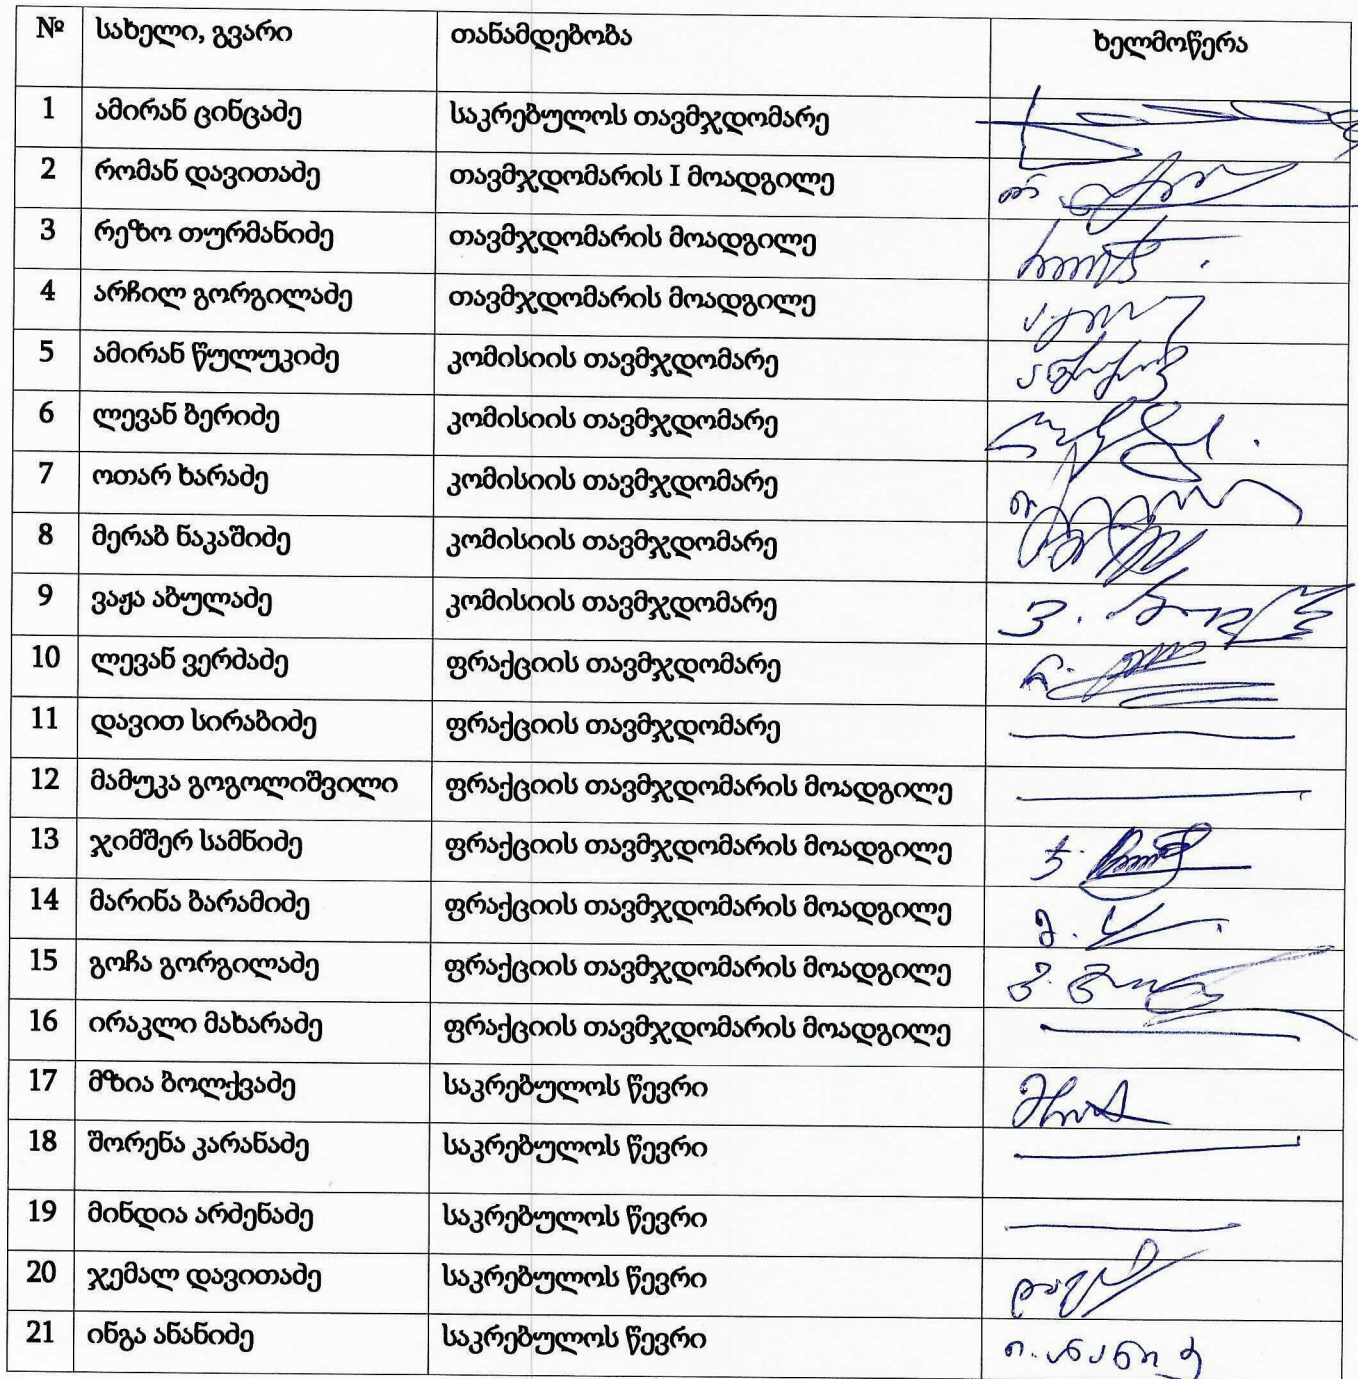 № სახელი, გვარი თანამდებობა ხელმოწერა
1 ამირან ცინცაძე საკრებულოს თავმჯდომარე
2 რომან დავითაძე თავმჯდომარის I მოადგილე
3 რეზო თურმანიძე თავმჯდომარის მოადგილე
4 არჩილ გორგილაძე თავმჯდომარის მოადგილე
5 ამირან წულუკიძე კომისიის თავმჯდომარე
6 ლევან ბერიძე კომისიის თავმჯდომარე
7 ოთარ ხარაძე კომისიის თავმჯდომარე
8 მერაბ ნაკაშიძე კომისიის თავმჯდომარე
9 ვაჟა აბულაძე კომისიის თავმჯდომარე
10 ლევან ვერძაძე ფრაქციის თავმჯდომარე
11 დავით სირაბიძე ფრაქციის თავმჯდომარე
12 მამუკა გოგოლიშვილი ფრაქციის თავმჯდომარის მოადგილე
13 ჯიმშერ სამნიძე ფრაქციის თავმჯდომარის მოადგილე
14 მარინა ბარამიძე ფრაქციის თავმჯდომარის მოადგილე
15 გოჩა გორგილაძე ფრაქციის თავმჯდომარის მოადგილე
16 ირაკლი მახარაძე ფრაქციის თავმჯდომარის მოადგილე
17 მზია ბოლქვაძე საკრებულოს წევრი
18 შორენა კარანაძე საკრებულოს წევრი
19 მინდია არძენაძე საკრებულოს წევრი
20 ჯემალ დავითაძე საკრებულოს წევრი
21 ინგა ანანიძე საკრებულოს წევრი ი. ანანიძ